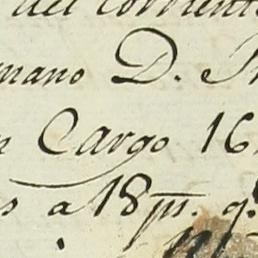 del corriente
mano D. 
Cargo 16
s a 18 ps. q.